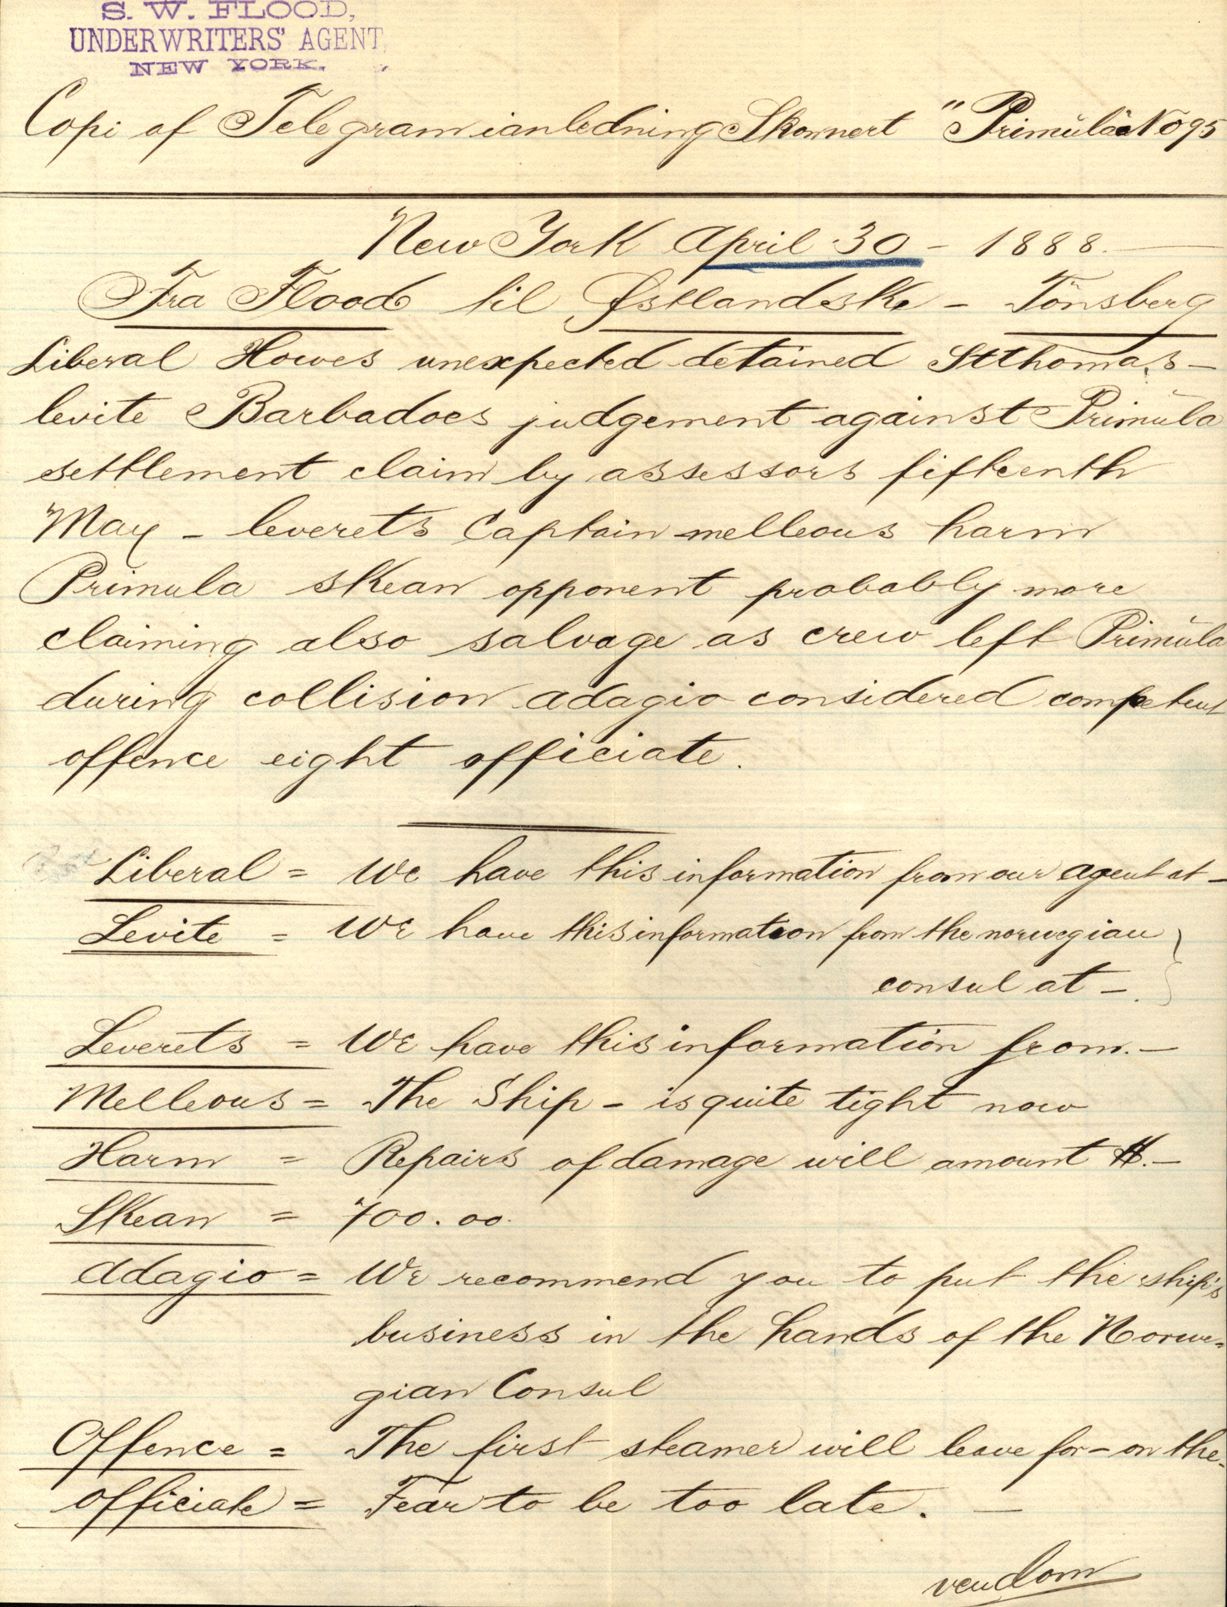 S. W. FLOOD,
UNDERWRITERS' AGENT,
NEW YORK.
Copi af Telegram ianledning Skonnert "Primúla" No 95
New York April 30 - 1888.
Fra Flood til Østlandske - Tönsberg
Liberal Howes unexpected detained Stthomas -
levite Barbadoes judgement against Primúla
settlement claim by assessors fifteenth
May - leverets Captain melleous harm
Primula skean opponent probably more
claiming also salvage as crew left Primúla
during collision adagio considered competent
offence eight officiate.
Liberal = We have this information from our agent at -
Levite = We have this information from the norwegian
consul at -
Leverets = We have this information from. -
Melleous = The Ship - is quite tight now
Harm = Repairs of damage will amount $. -
Skean = 700.00.
Adagio = We recommend you to put the ship's
business in the hands of the Norwe-
gian Consul
Offence = The first steamer will leave for - on the -
officiate = Fear to be too late. -